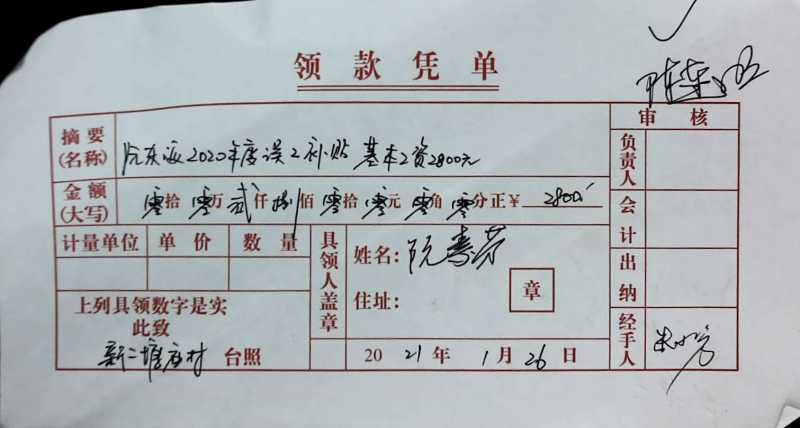 领款凭单
审核
摘要(名称) 阮东海2020年度误工补贴 基本工资2800元
负责人
金额(大写) 零拾零万贰仟捌佰零拾零元零角零分正¥ 2800
会计
计量单位 单价 数量
具领人盖章
姓名: 阮素芬
住址:
章
出纳
上列具领数字是实
此致
新二塘庙村 台照
2021年1月26日
经手人